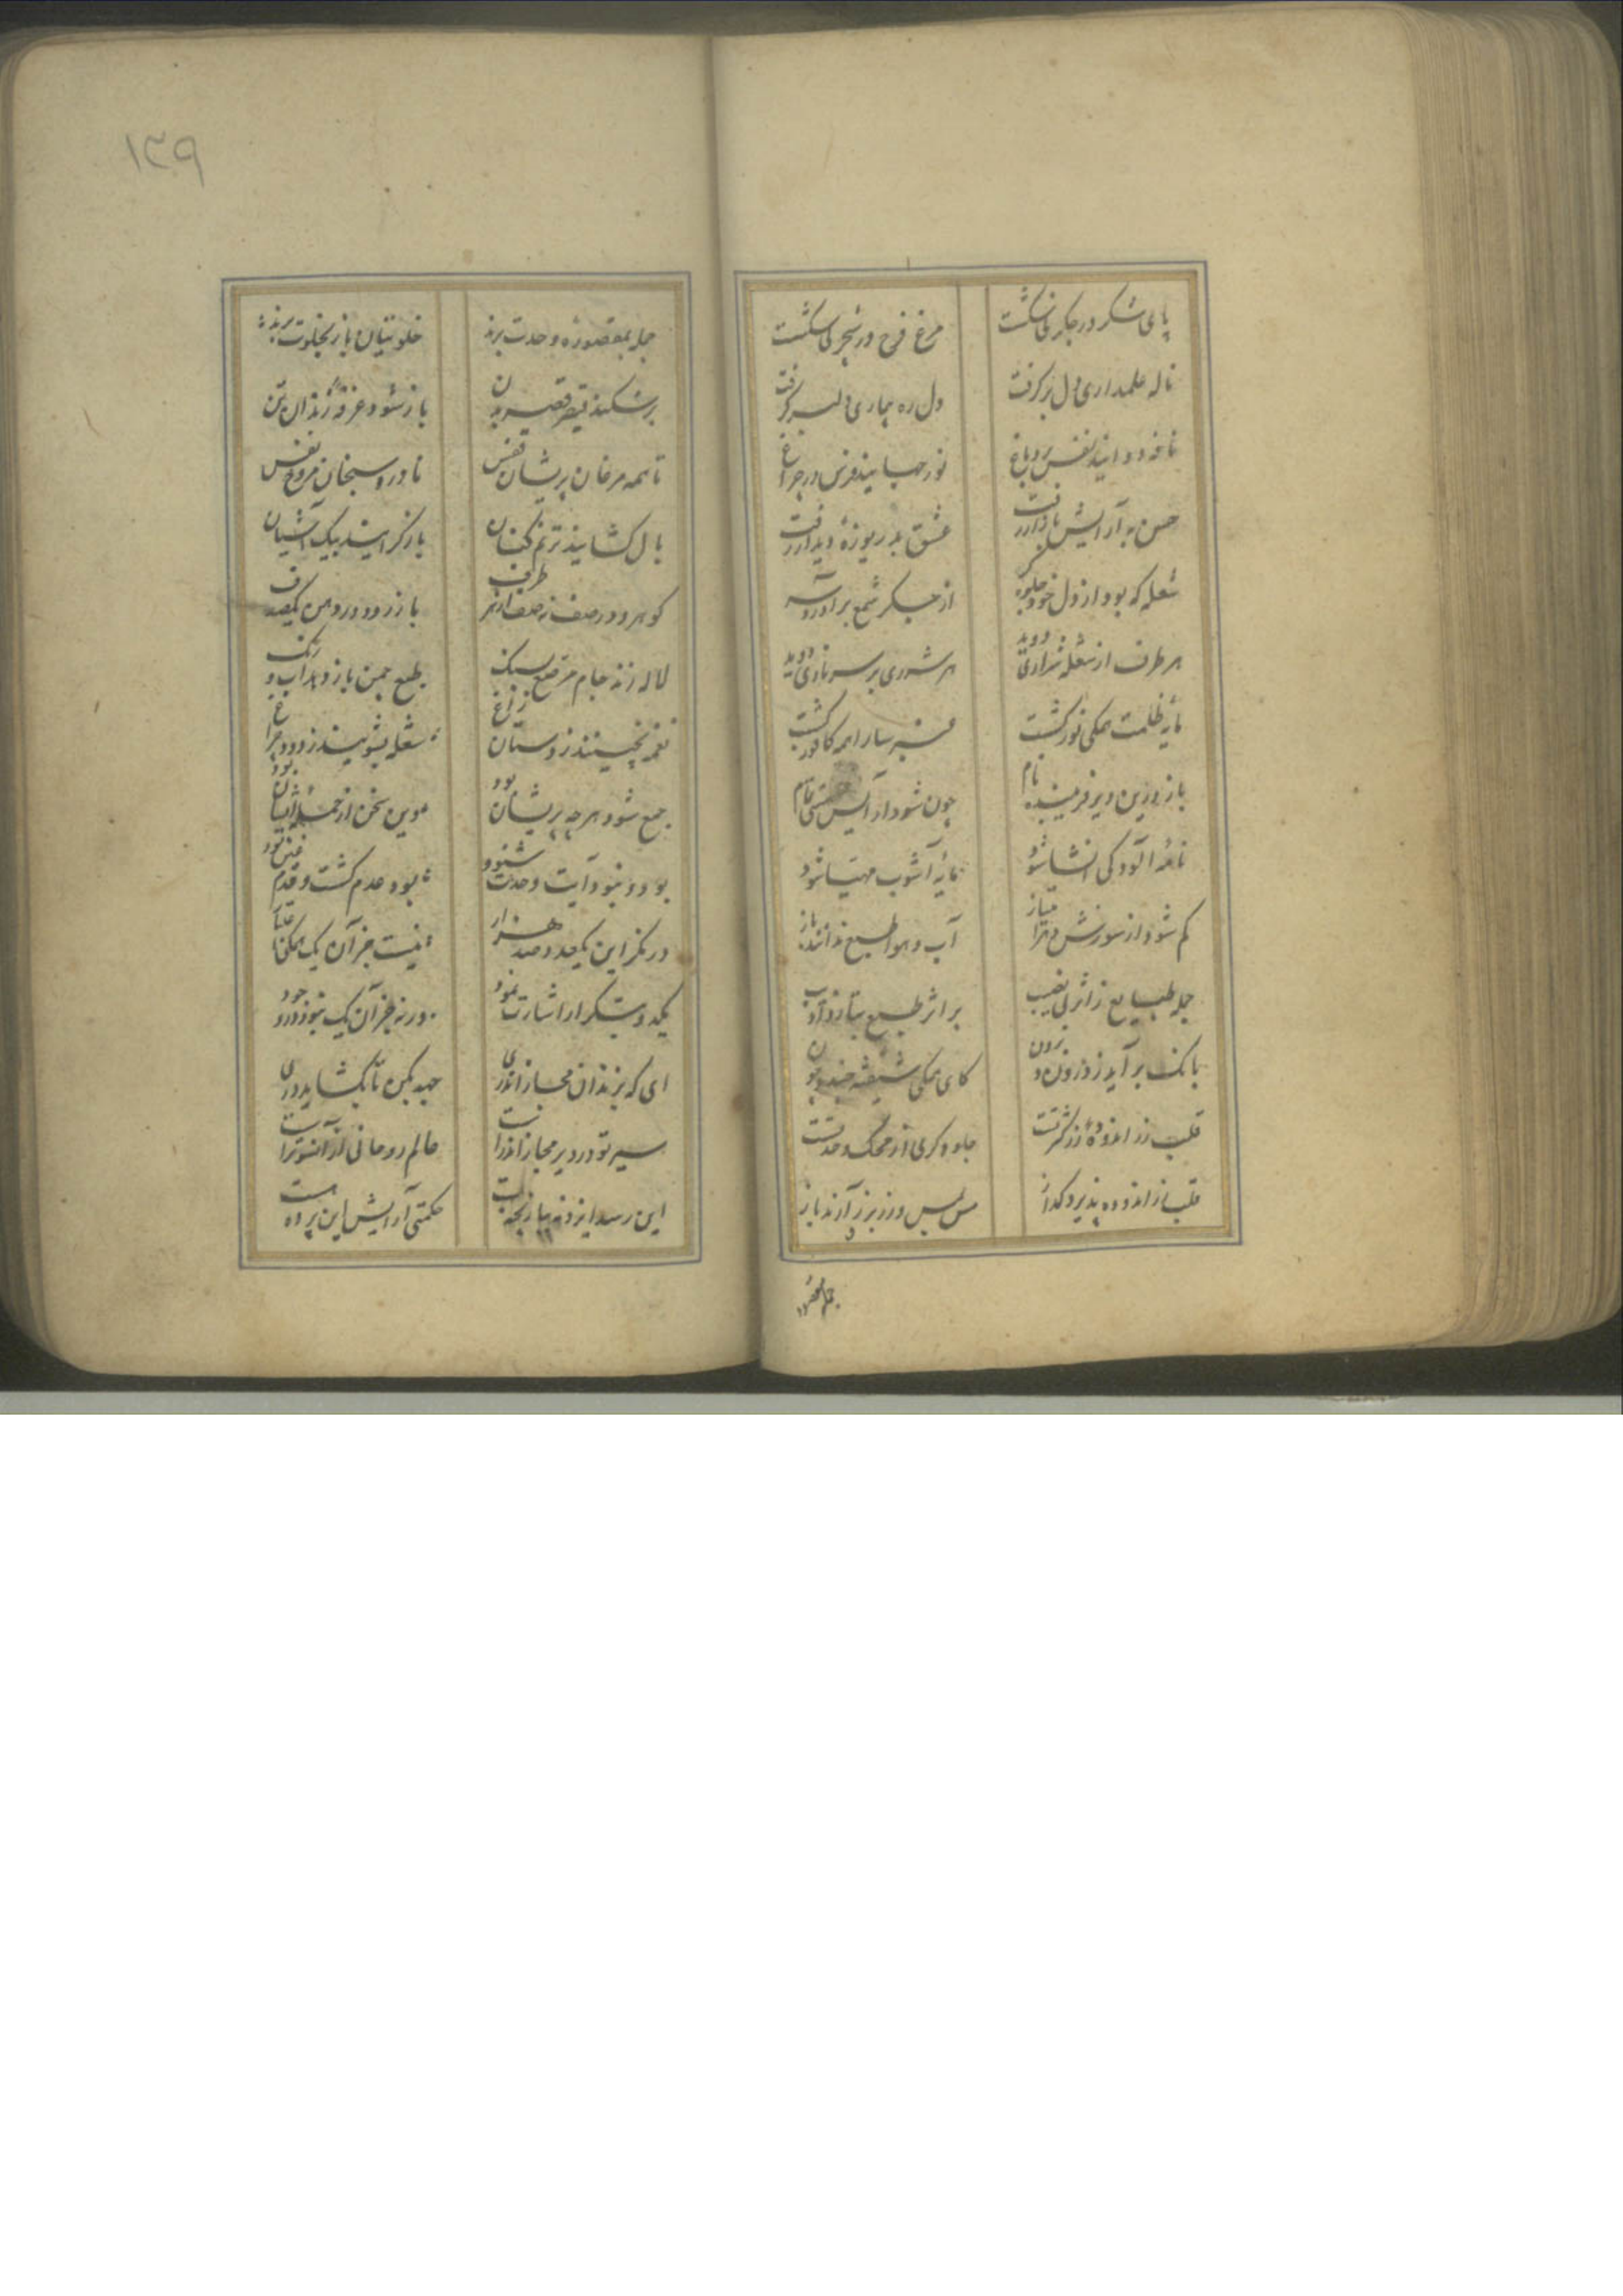 پای شکر در جگر نی شکست
مرغ فرح در شجر شکست
ناله علمداری دل بر کرفت
دل ره بیماری دلبر کرفت
نافه دواند نفس در دماغ
نور در چراغ
حسن به آرایش بازار رفت
عشق بدریوزهٔ دیدار رفت
شعله که بود از دل خود جلوه
از جکر شمع برآورد سر
هر طرف از شعله شراری دوید
هر شرری بر سر ناری دوید
مایهٔ ظلمت همکی نور کشت
را همه کافور کشت
باز درین دیر فریبنده نام
چون شود آرایش هستی تمام
آلودکی انشا شود
مایهٔ آشوب مهیا شود
کم شود از سوزش
آب و هوا طبع ندانند باز
جمله طبایع ز اثر بی نصیب
بر اثر طبع
بانک برآید ز درون و برون
کای همکی شیفتهٔ چند و چون
قلب زر اندودهٔ
جلوه کری از محک وحدتست
قلب زر اندوده پذیرد کداز
مس مس و زر زر آرند باز
جمله بمقصوره
۱۲۹
جمله بمقصورهٔ وحدت برند
خلوتیان باز بخلوت برند
برشکند قیصر
باز شود غرفهٔ زندان تن
تا همه مرغان پریشان قفس
نفس
بال کشایند ترنم کنان
باز کرایند بیک آشیان
کوهر و در صف زده از هر طرف
باز رود در دهن یک صدف
لاله زند جام مرصع بسنک
طبع چمن باز دهد آب و رنک
نغمه نچینند ز دستان زاغ
شعله بشویند ز دود چراغ
جمع شود هر چه پریشان بود
وین سخن از
بود و نبود آیت وحدت شنود
بود عدم کشت و قدم
در نکر این یکصد و صد هزار
نیست جز آن یک همکی
یکصد و بتکرار اشارت نمود
ورنه جز آن یک نبود در وجود
ای که بزندان مجاز اندری
جهد بکن تا بکشاید دری
سیر تو در دیر مجاز اندر است
عالم روحانی از آنسوتر است
این رسد ایزد نه ببازیچه بست
حکمتی آرایش این پرده هست